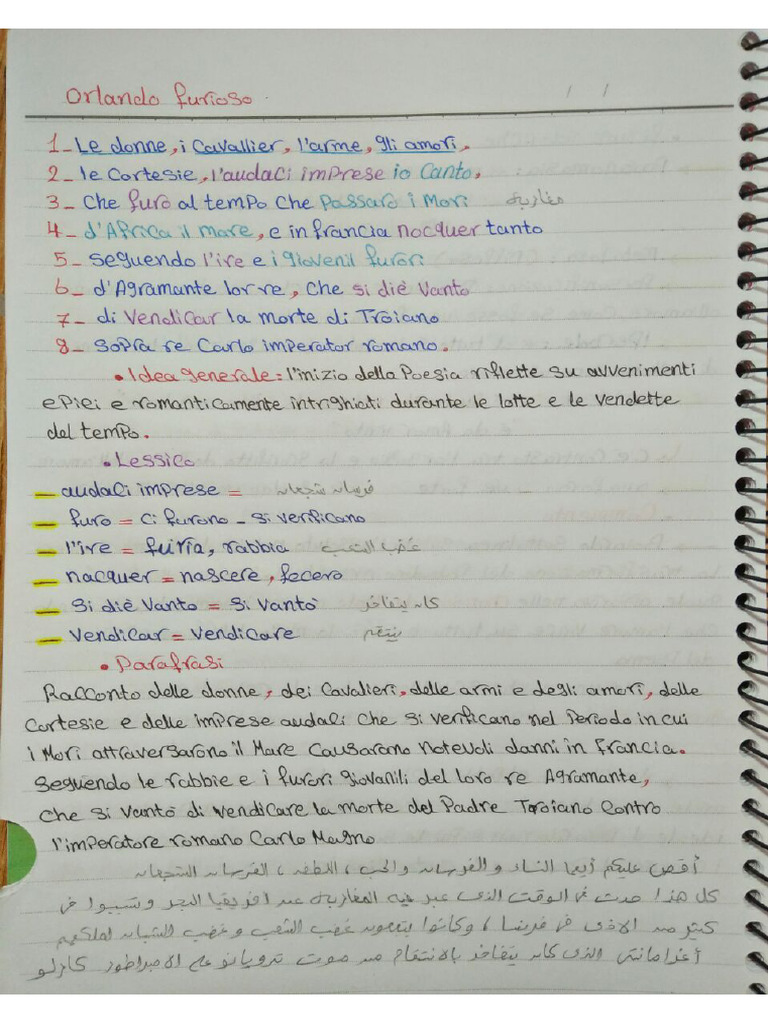 Orlando furioso / /
1_ Le donne, i Cavallier, l'arme, gli amori,
2_ le Cortesie, l'audaci imprese io Canto,
3_ Che furo al tempo che Passaro i Mori مغاربة
4_ d'Africa il mare, e in francia nocquer tanto
5_ Seguendo l'ire e i giovenil furori
6_ d'Agramante lor re, Che si diè Vanto
7_ di Vendicar la morte di Troiano
8_ Sopra re Carlo imperator romano.
• Idea generale: l'inizio della Poesia riflette su avvenimenti
ePici e romanticamente intrighiati durante le lotte e le vendette
del tempo.
• Lessico
_ audaci imprese = فرسان شجعان
_ furo = Ci furono _ Si verificano
_ l'ire = fuiria, rabbia غضب الشعب
_ nacquer = nascere, fecero
_ Si diè Vanto = Si Vantò كان يتفاخر
_ Vendicar = Vendicare ينتقم
• Parafrasi
Racconto delle donne, dei Cavalieri, delle armi e degli amori, delle
Cortesie e delle imprese audaci che si verificano nel Periodo in cui
i Mori attraversarono il Mare Causarono notevoli danni in Francia.
Seguendo le rabbie e i furori giovanili del loro re Agramante,
Che si Vantò di vendicare la morte del Padre Troiano Contro
l'imperatore romano Carlo Magno
أقص عليكم أيها النساء والفرسان والحب، اللطف، الفرسان الشجعان
كل هذا حدث في الوقت الذى عبر فيه المغاربة عند افريقيا البحر وتسببوا في
كثير من الأذى في فرنسا، وكانوا يتبعون غضب الشعب وغضب الشبان لملكهم
أغرامانتي الذى كان يتفاخر بالانتقام من موت ترويانو على الامبراطور كارلو